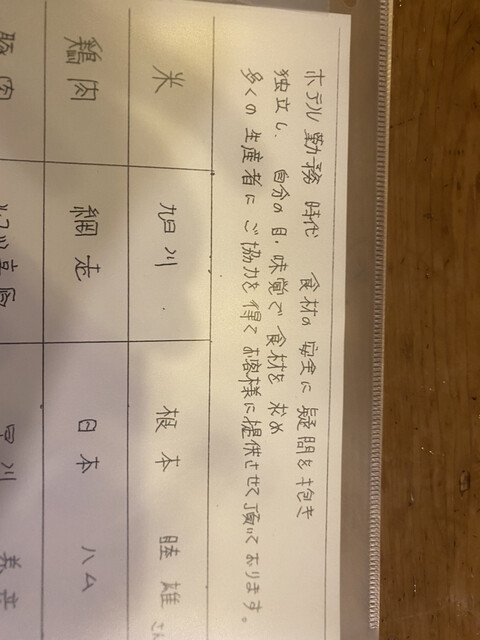 ホテル勤務時代 食材の安全に疑問を抱き
独立し、自分の目、味覚で食材を求め
多くの生産者にご協力を得てお客様に提供させて頂いております。
米 旭川 根本 睦雄さん
鶏肉 網走 日本ハム
豚肉